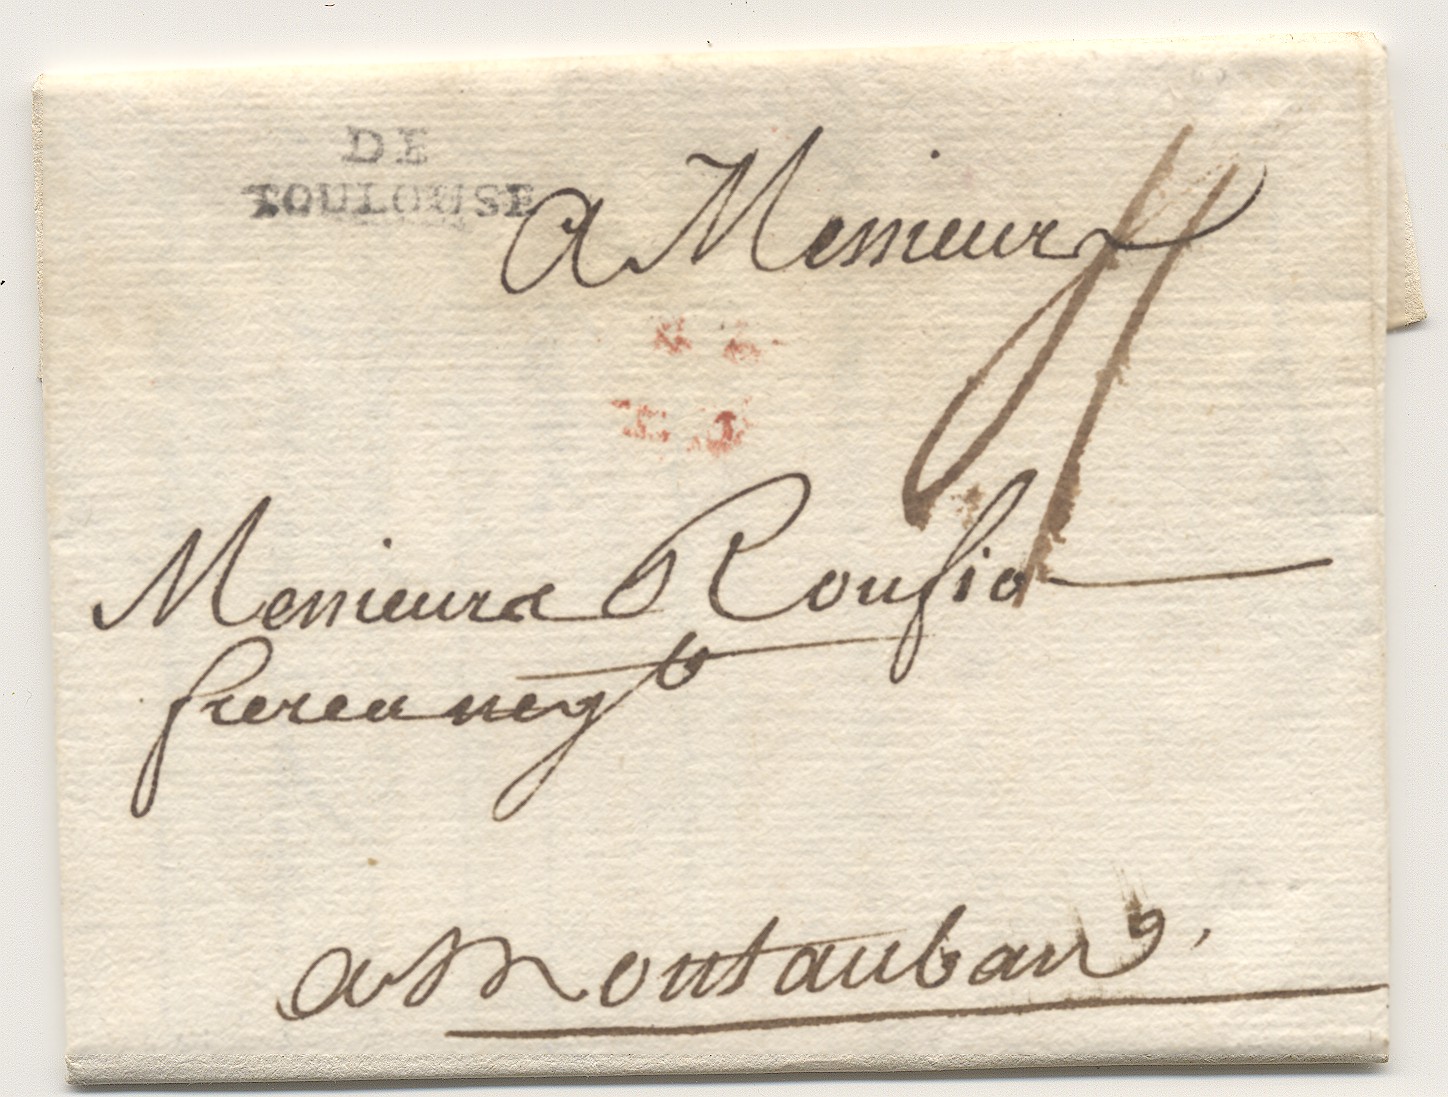 DE
TOULOUSE
A Messieurs
Messieurs Roufio
freres negts
a Montauban